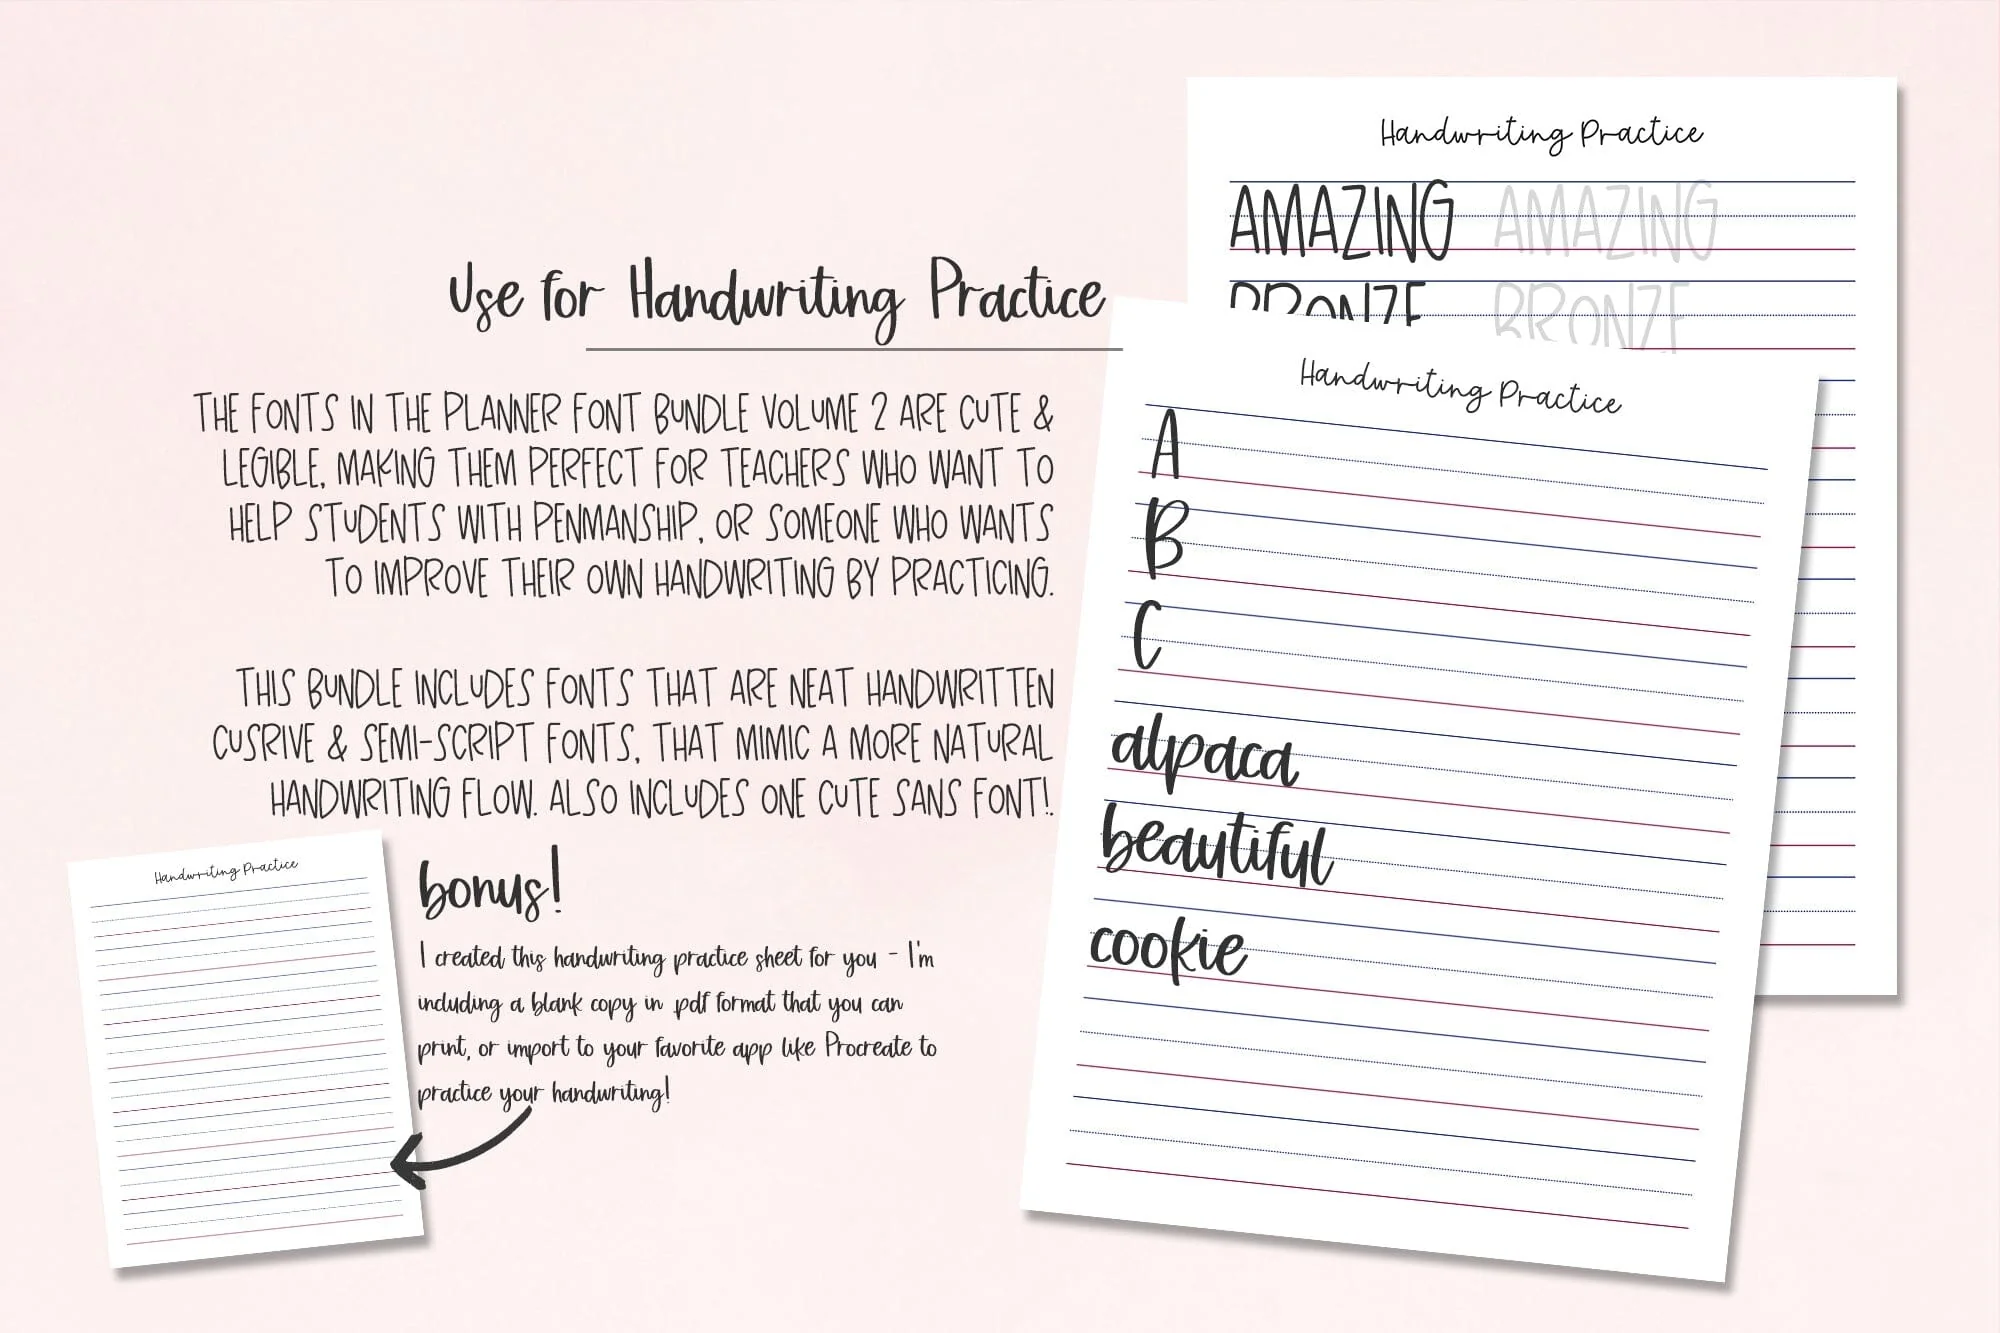 Use for Handwriting Practice
THE FONTS IN THE PLANNER FONT BUNDLE VOLUME 2 ARE CUTE &
LEGIBLE, MAKING THEM PERFECT FOR TEACHERS WHO WANT TO
HELP STUDENTS WITH PENMANSHIP, OR SOMEONE WHO WANTS
TO IMPROVE THEIR OWN HANDWRITING BY PRACTICING.
THIS BUNDLE INCLUDES FONTS THAT ARE NEAT HANDWRITTEN
CUSRIVE & SEMI-SCRIPT FONTS, THAT MIMIC A MORE NATURAL
HANDWRITING FLOW. ALSO INCLUDES ONE CUTE SANS FONT!.
Handwriting Practice
bonus!
I created this handwriting practice sheet for you - I'm
including a blank copy in .pdf format that you can
print, or import to your favorite app like Procreate to
practice your handwriting!
Handwriting Practice
AMAZING AMAZING
BRONZE BRONZE
Handwriting Practice
A
B
C
alpaca
beautiful
cookie